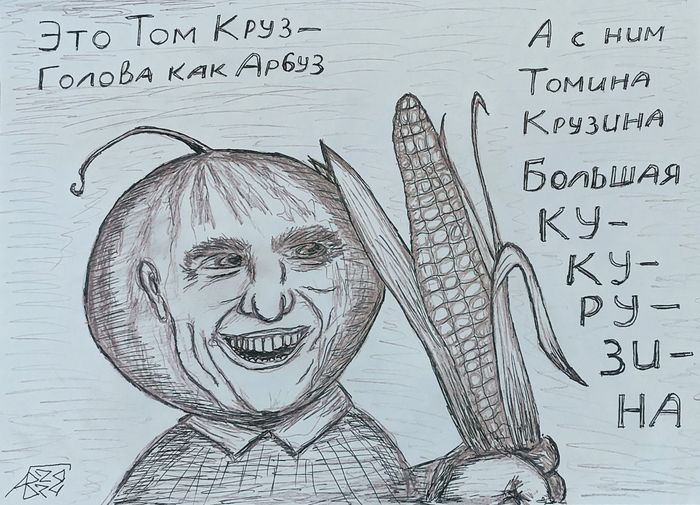 Это Том Круз—
Голова как Арбуз
А с ним
Томина
Крузина
Большая
КУ-
КУ-
РУ-
ЗИ-
НА